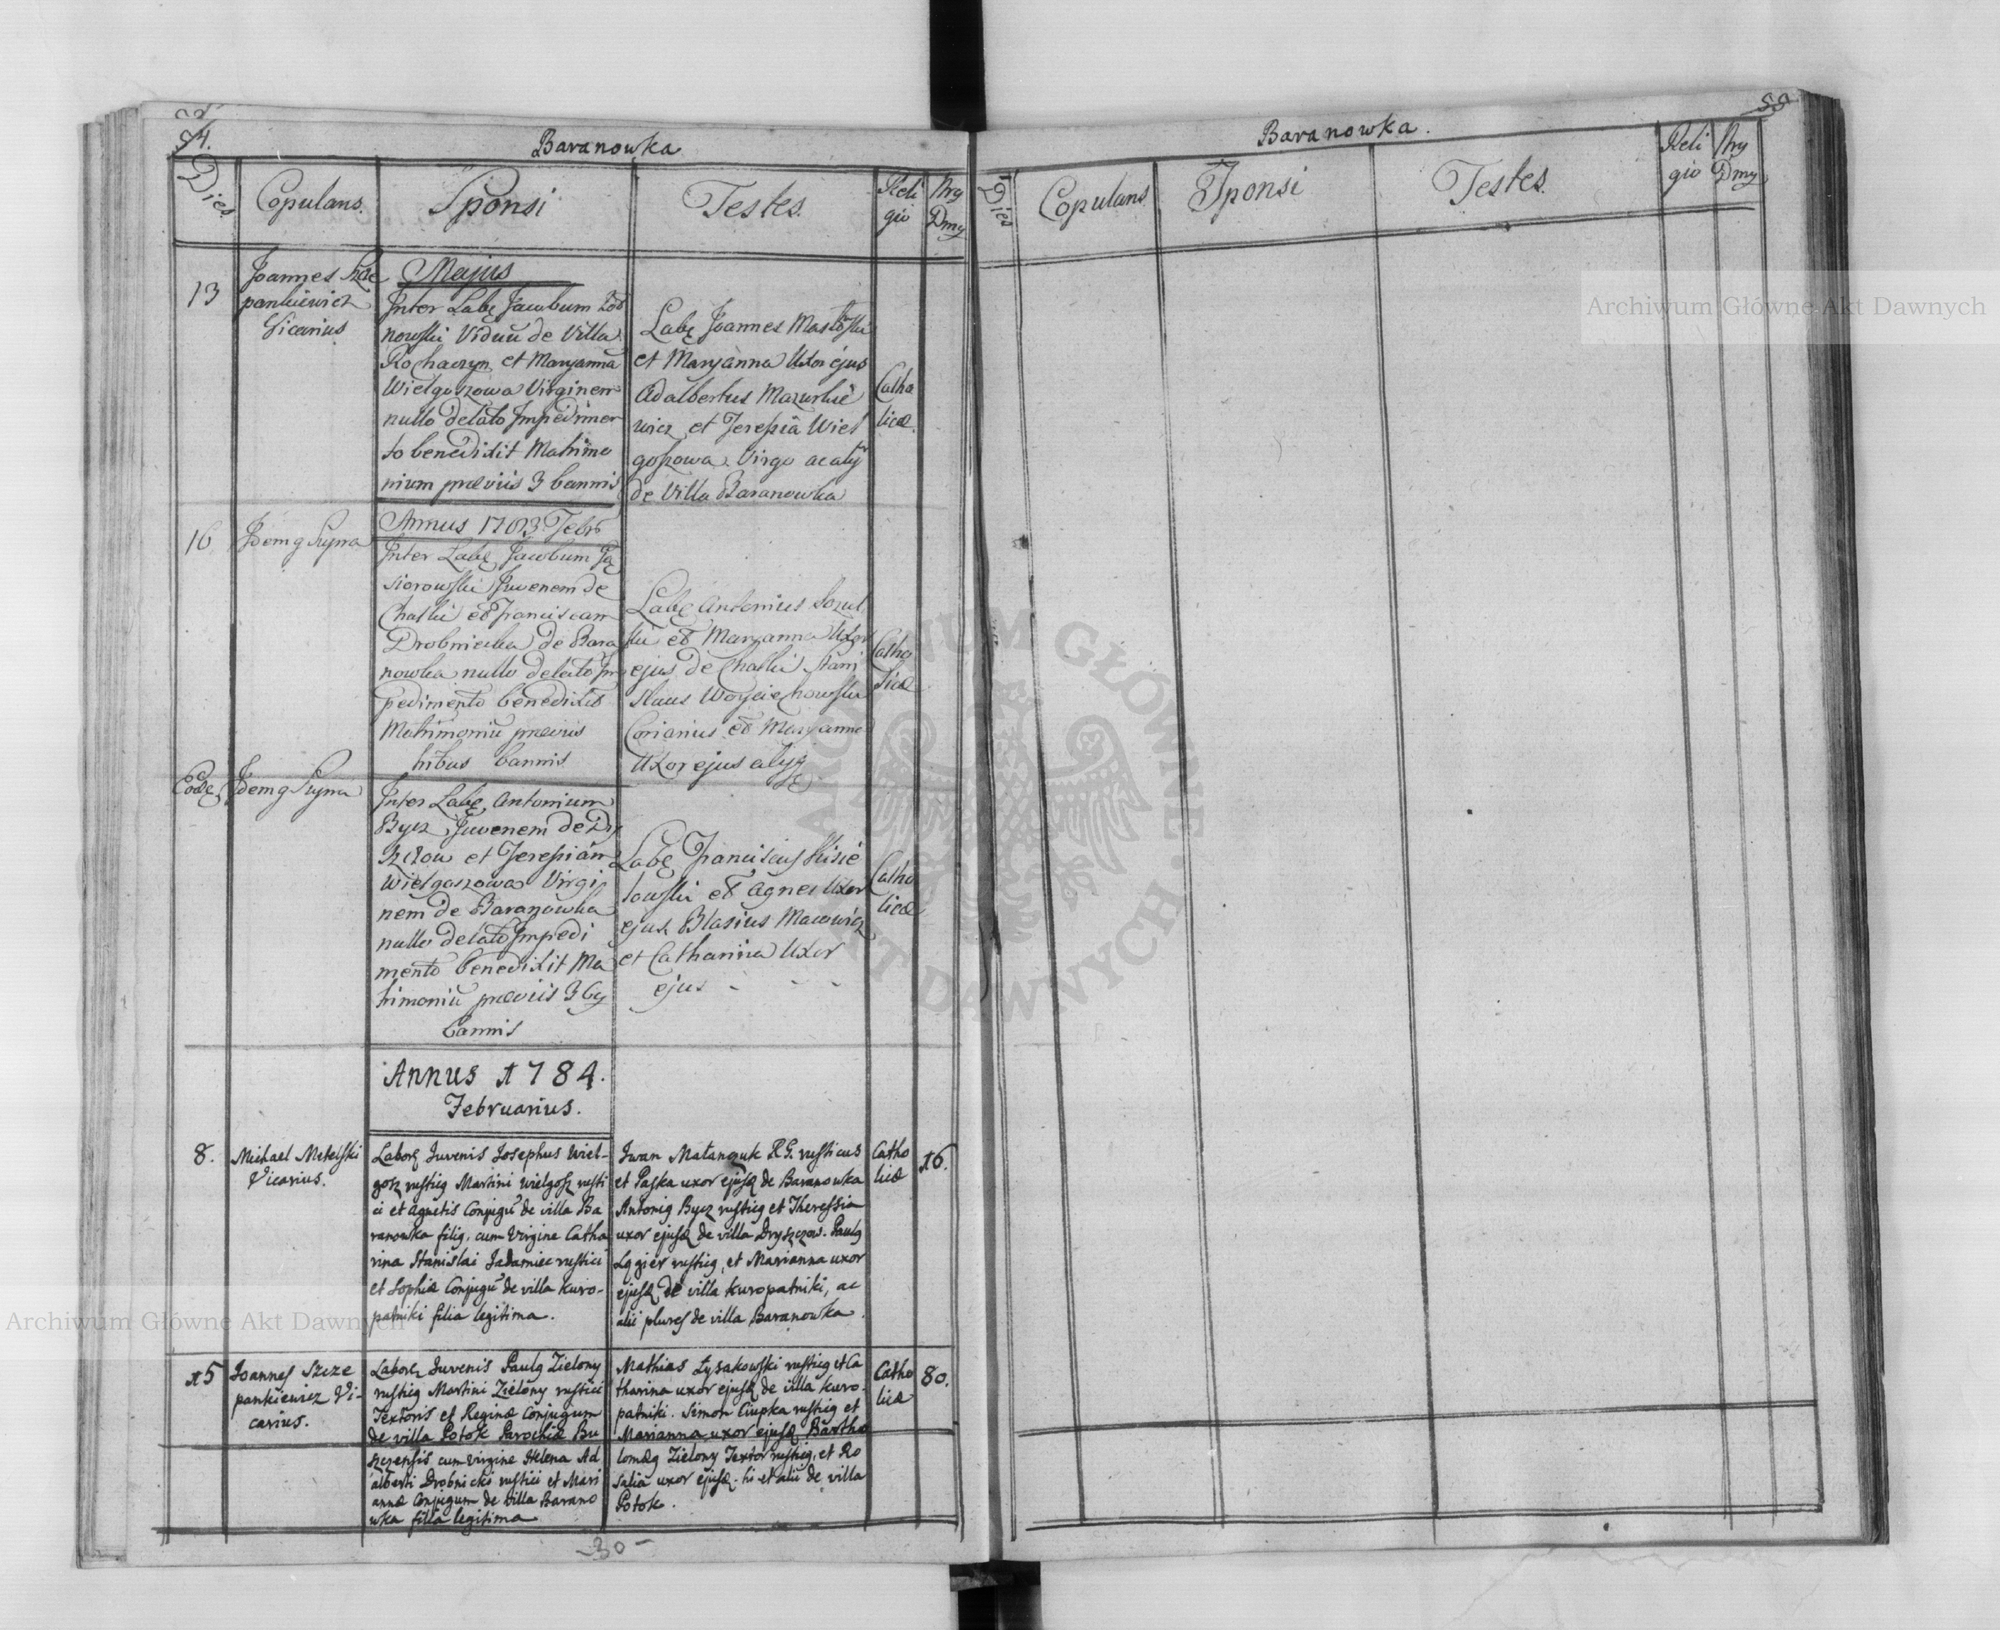 54.
Baranowka
Dies
Copulans.
Sponsi
Testes.
Reli
gio
Nrg
Dmg
13
Joannes Szcze
pankiewicz
Vicarius
Majus
Inter Labę Jacobum
nowski Viduũ de Villa
Rohaczyn et Maryanna
Wielgoszowa Virginem
nullo delato Impedimen
to benedixit Matrimo
nium præviis 3 bannis
Labę Joannes
et Maryanna Uxor ejus
Adalbertus Mazurkie
wicz et Teressia Wiel
goszowa Virgo ac alij
de Villa Baranowka
Catho
licæ.
16
Idem q Supra
Annus 1783 Febr
Inter Labę Jacobum Gą
siorowski Juvenem de
Chatki et Franciscam
Drobniecka de Bara
nowka nullo delato Im
pedimento benedixit
Matrimoniũ præviis
tribus bannis
Labę Antonius Szul
ski et Maryanna Uxor
ejus de Chatki Stani
slaus Woyciechowski
et Maryanna
Uxor ejus alyq
Catho
licæ
Eodẽ
Idem q Supra
Inter Labę Antonium
Bycz Juvenem de Dry
szczow et Teressiam
Wielgoszowa Virgi
nem de Baranowka
nullo delato Impedi
mento benedixit Ma
trimoniũ præviis 3bꝯ
bannis
Labę Franciscus Kisie
lowski et Agnes Uxor
ejus Blasius Macowicz
et Catharina Uxor
ejus - - -
Catho
licæ
Annus 1784.
Februarius.
8.
Michael Metelski
Vicarius.
Laborꝭ Juvenis Josephus Wiel-
gosz rusticꝯ Martini Wielgosz rusti
ci et Agnetis Conjugũ de villa Ba
ranowka filiꝯ, cum Virgine Catha
rina Stanislai Jadamiec rustici
et Sophiæ Conjugũ de villa Kuro-
patniki filia legitima.
Iwan Matanczuk R.G. rusticus
et Paska uxor ejusꝗ de Baranowka
Antoniꝯ Bycz rusticꝯ et Theressia
uxor ejusꝗ de villa Dryszczow. Paulꝯ
Lęgier rusticꝯ, et Marianna uxor
ejusꝗ de villa Kuropatniki, ac
alii plures de villa Baranowka.
Catho
licæ
16.
15
Joannes Szcze
pankiewicz Vi-
carius.
Laborꝭ Juvenis Paulꝯ Zielony
rusticꝯ Martini Zielony rustici
Textoris et Reginæ Conjugum
de villa Potok Parochiæ Bu
szczensis cum virgine Helena Ad
alberti Drobnicki rustici et Mari
annæ Conjugum de villa Barano
wka filia legitima
Mathias Łysakowski rusticꝯ et Ca
tharina uxor ejusꝗ de villa Kuro-
patniki. Simon Ciupka rusticꝯ et
Marianna uxor ejusꝗ Bartho
lomæꝯ Zielony Textor rusticꝯ, et Ro
salia uxor ejusꝗ. hi et alii de villa
Potok.
Catho
licæ
80.
-30-
55
Baranowka.
Dies
Copulans
Sponsi
Testes.
Reli
gio
Nrg
Dmg
Archiwum Główne Akt Dawnych
Archiwum Główne Akt Dawnych
ARCHIWUM GŁÓWNE AKT DAWNYCH